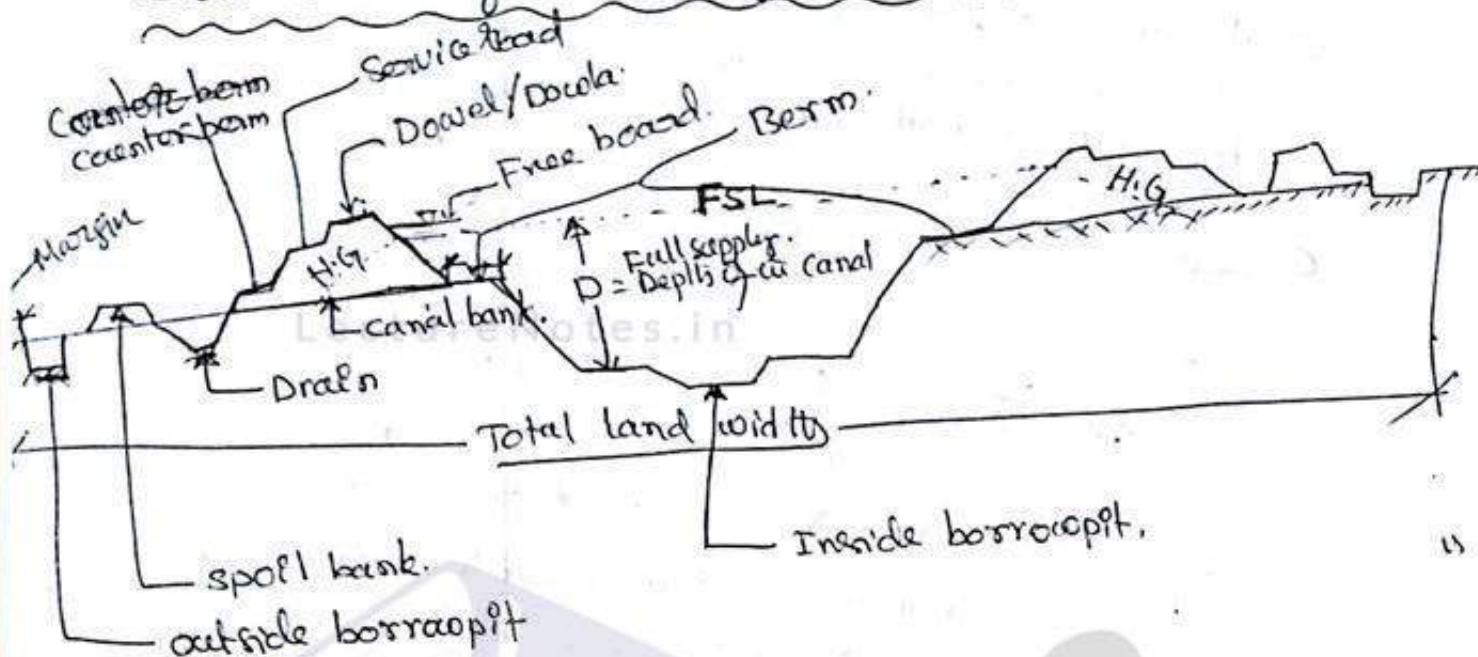 Service Road
Counter berm
Counter berm
Dowel/Dowla.
Free board.
Berm.
Margin
H.G.
FSL
H.G
Full supply.
D = Depth of canal
canal bank.
LectureNotes.in
Drain
Total land width
Inside borrowpit.
spoil bank.
outside borrowpit